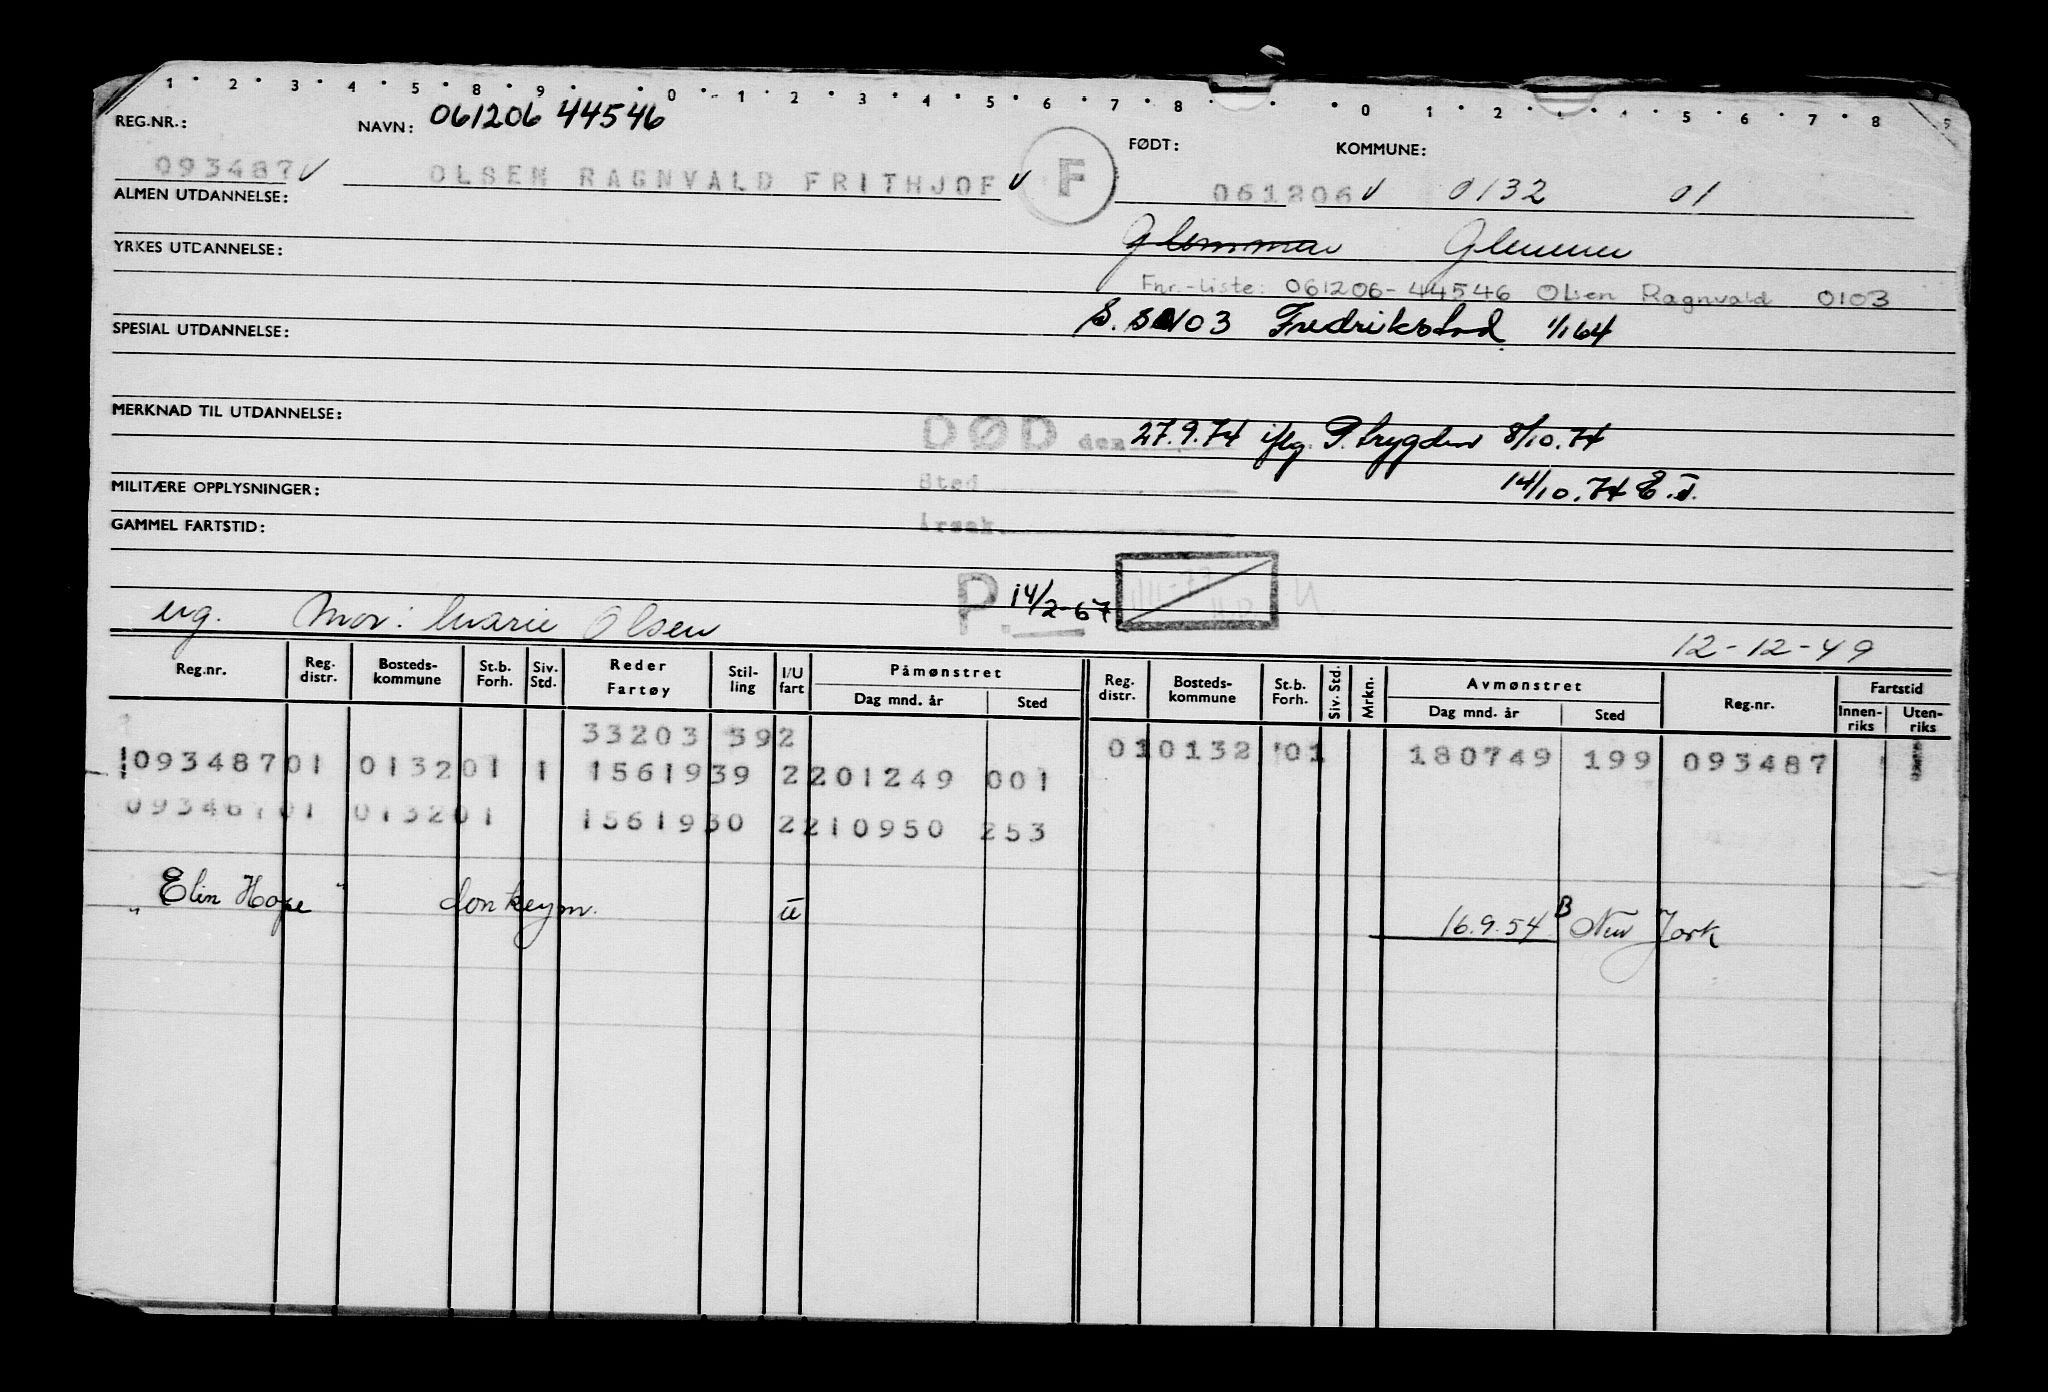 1 2 3 4 5 8 9 0 1 2 3 4 5 6 7 8 0 1 2 5 6 7 8 9
REG.NR.: NAVN: 061206 44546 FØDT: KOMMUNE:
093487 OLSEN RAGNVALD FRITHJOF F 061206 0132 01
ALMEN UTDANNELSE:
Glemmen Glemmen
YRKES UTDANNELSE:
Fnr.-liste: 061206-44546 Olsen Ragnvald 0103
S. s 0103 Fredrikstad 1/1 64
SPESIAL UTDANNELSE:
MERKNAD TIL UTDANNELSE:
DØD den 27.9.74 iflg. P. trygden 8/10.74
Sted 14/10.74
MILITÆRE OPPLYSNINGER:
GAMMEL FARTSTID:
Årsak.
P. 14/2-67
ug. Mor: Marie Olsen
12-12-49
Reg.nr. Reg. distr. Bosteds-kommune St.b. Forh. Siv. Std. Reder Fartøy Stil-ling I/U fart Påmønstret Dag mnd. år Sted Reg. distr. Bosteds-kommune St.b. Forh. Siv. Std. Mrkn. Avmønstret Dag mnd. år Sted Reg.nr. Fartstid Innen-riks Uten-riks
33203 392
09348701 013201 1 1561939 2201249 001 010132 01 180749 199 093487
09348701 013201 1561930 2210950 253
"Elin Hope" donkeym. u 16.9.54 B New York